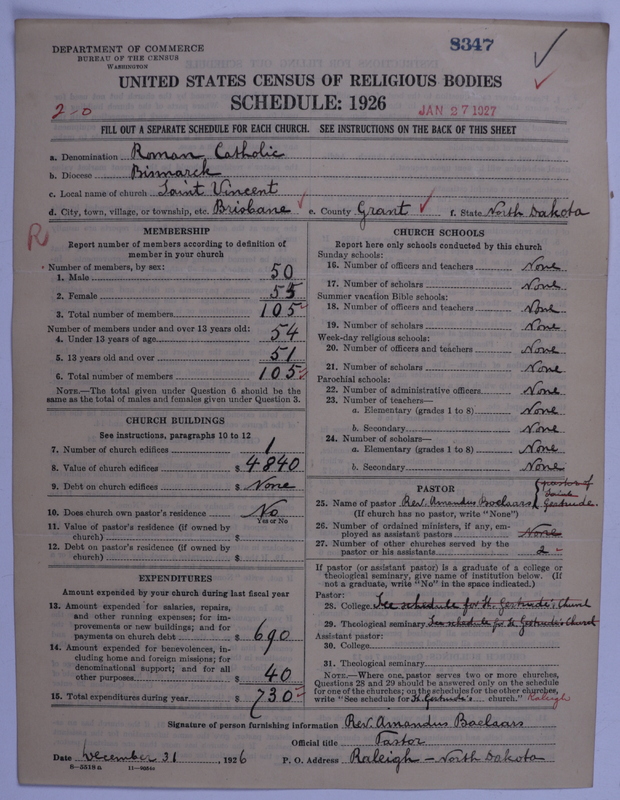 DEPARTMENT OF COMMERCE
BUREAU OF THE CENSUS
WASHINGTON
8347
UNITED STATES CENSUS OF RELIGIOUS BODIES
SCHEDULE: 1926
2-0
JAN 27 1927
FILL OUT A SEPARATE SCHEDULE FOR EACH CHURCH. SEE INSTRUCTIONS ON THE BACK OF THIS SHEET
a. Denomination Roman Catholic
b. Diocese Bismarck
c. Local name of church Saint Vincent
d. City, town, village, or township, etc. Brisbane e. County Grant f. State North Dakota
R
MEMBERSHIP
Report number of members according to definition of
member in your church
Number of members, by sex:
1. Male 50
2. Female 55
3. Total number of members 105
Number of members under and over 13 years old:
4. Under 13 years of age 54
5. 13 years old and over 51
6. Total number of members 105
NOTE.—The total given under Question 6 should be the
same as the total of males and females given under Question 3.
CHURCH BUILDINGS
See instructions, paragraphs 10 to 12
7. Number of church edifices 1
8. Value of church edifices $ 4840
9. Debt on church edifices $ None
10. Does church own pastor's residence No
Yes or No
11. Value of pastor's residence (if owned by
church) $
12. Debt on pastor's residence (if owned by
church) $
EXPENDITURES
Amount expended by your church during last fiscal year
13. Amount expended for salaries, repairs,
and other running expenses; for im-
provements or new buildings; and for
payments on church debt $ 690
14. Amount expended for benevolences, in-
cluding home and foreign missions; for
denominational support; and for all
other purposes $ 40
15. Total expenditures during year $ 730
CHURCH SCHOOLS
Report here only schools conducted by this church
Sunday schools:
16. Number of officers and teachers None
17. Number of scholars None
Summer vacation Bible schools:
18. Number of officers and teachers None
19. Number of scholars None
Week-day religious schools:
20. Number of officers and teachers None
21. Number of scholars None
Parochial schools:
22. Number of administrative officers None
23. Number of teachers—
a. Elementary (grades 1 to 8) None
b. Secondary None
24. Number of scholars—
a. Elementary (grades 1 to 8) None
b. Secondary None
PASTOR
pastor of
Saint
25. Name of pastor Rev. Amandus Boelaars Gertrude.
(If church has no pastor, write "None")
26. Number of ordained ministers, if any, em-
ployed as assistant pastors None
27. Number of other churches served by the
pastor or his assistants 2
If pastor (or assistant pastor) is a graduate of a college or
theological seminary, give name of institution below. (If
not a graduate, write "No" in the space indicated.)
Pastor:
28. College See schedule for St. Gertrude's Church
29. Theological seminary See schedule for St Gertrude's Church
Assistant pastor:
30. College
31. Theological seminary
NOTE.—Where one pastor serves two or more churches,
Questions 28 and 29 should be answered only on the schedule
for one of the churches; on the schedules for the other churches,
write "See schedule for St. Gertrude's church." Raleigh
Signature of person furnishing information Rev. Amandus Boelaars
Official title Pastor
Date December 31, 1926 P. O. Address Raleigh - North Dakota